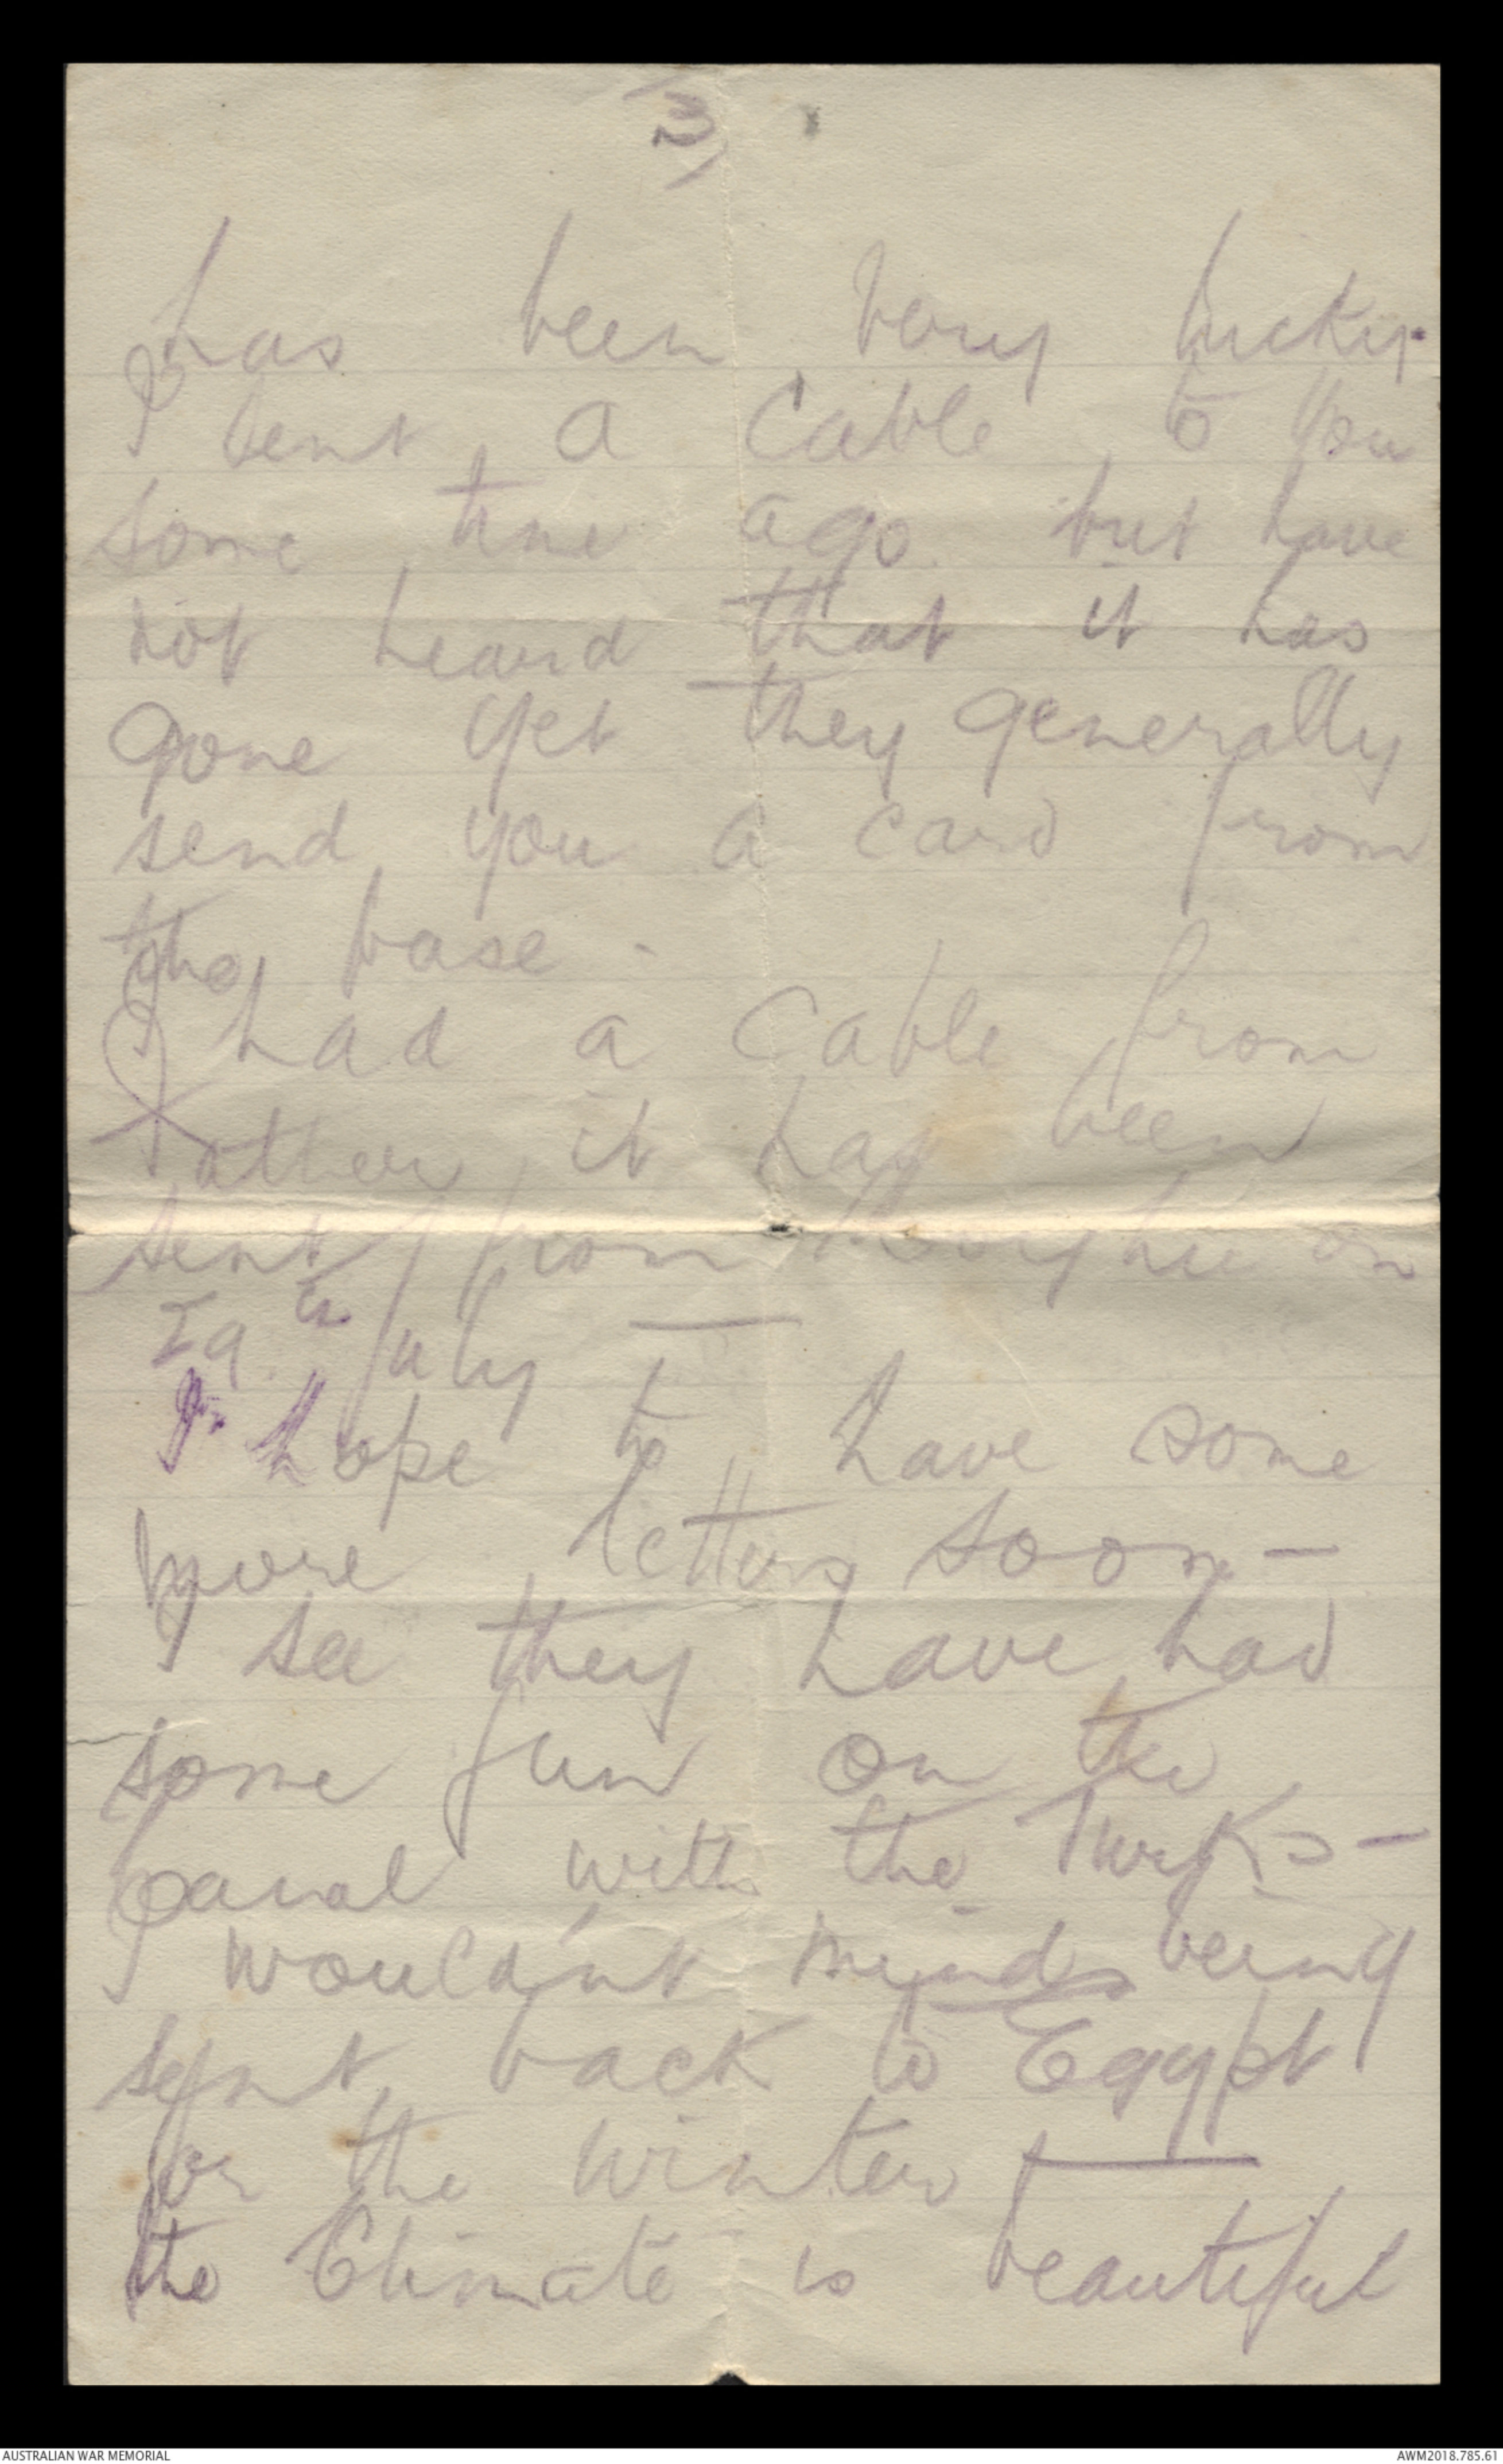 3
has been very lucky.
I sent a Cable to you
some time ago but have
not heard that it has
gone yet they generally
send you a card from
the base -
I had a Cable from
Father it has been
sent from on
29th July —
I hope to have some
more letters soon —
I see they have had
some fun on the
Canal with the Turks —
I would'nt mind being
sent back to Egypt
for the winter —
the Climate is beautiful
AUSTRALIAN WAR MEMORIAL
AWM2018.785.61